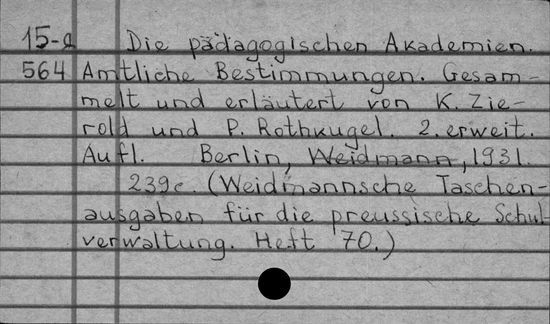 15-я Die pädagogischen Akademien.
564 Amtliche Bestimmungen. Gesam-
melt und erläutert von K. Zie-
rold und P. Rothkugel. 2. erweit.
Aufl. Berlin, Weidmann, 1931.
239 с. (Weidmannsche Taschen-
ausgaben für die preussische Schul
verwaltung. Heft 70.)